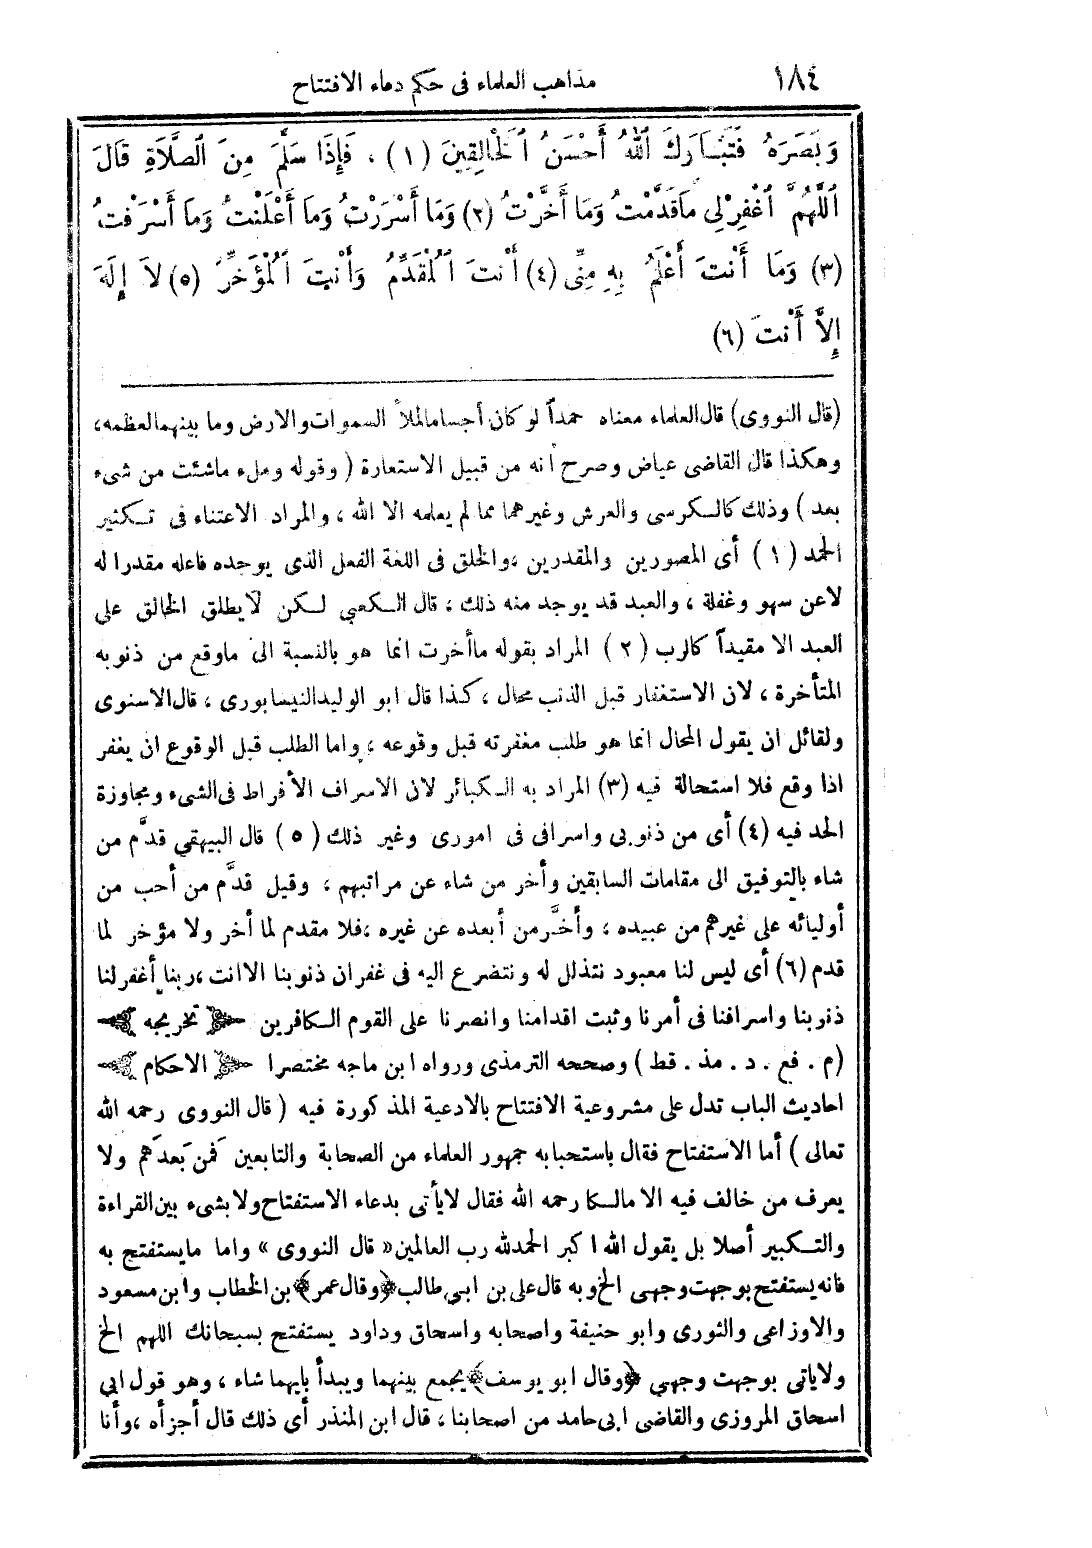 ١٨٤ مذاهب العلماء فى حكم دعاء الافتتاح
وَبَصَرَهُ فَتَبَارَكَ اللهُ أَحْسَنُ الْخَالِقِينَ (١) ، فَإِذَا سَلَّمَ مِنَ الصَّلَاةِ قَالَ
اللَّهُمَّ اغْفِرْ لِي مَا قَدَّمْتُ وَمَا أَخَّرْتُ (٢) وَمَا أَسْرَرْتُ وَمَا أَعْلَنْتُ وَمَا أَسْرَفْتُ
(٣) وَمَا أَنْتَ أَعْلَمُ بِهِ مِنِّى (٤) أَنْتَ الْمُقَدِّمُ وَأَنْتَ الْمُؤَخِّرُ (٥) لاَ إِلَهَ
إِلاَّ أَنْتَ (٦)
(قال النووى) قال العلماء معناه حمداً لو كان أجساما لملأ السموات والارض وما بينهما لعظمه،
وهكذا قال القاضى عياض وصرح أنه من قبيل الاستعارة ( وقوله وملء ماشئت من شىء
بعد ) وذلك كالـكرسى والعرش وغيرهما مما لم يعلمه الا الله ، والمراد الاعتناء فى تـكثير
الحمد (١) أى المصورين والمقدرين ،والخلق فى اللغة الفعل الذى يوجده فاعله مقدرا له
لاعن سهو وغفلة ، والعبد قد يوجد منه ذلك ، قال الـكعبى لـكن لايطلق الخالق على
العبد الا مقيداً كالرب (٢) المراد بقوله ماأخرت انما هو بالنسبة الى ماوقع من ذنوبه
المتأخرة ، لان الاستغفار قبل الذنب محال ، كذا قال ابو الوليد النيسابورى ، قال الاسنوى
ولقائل ان يقول المحال انما هو طلب مغفرته قبل وقوعه ، واما الطلب قبل الوقوع ان يغفر
اذا وقع فلا استحالة فيه (٣) المراد به الـكبائر لان الاسراف الأفراط فى الشىء ومجاوزة
الحد فيه (٤) أى من ذنوبى واسرافى فى امورى وغير ذلك (٥) قال البيهقي قدَّم من
شاء بالتوفيق الى مقامات السابقين وأخر من شاء عن مراتبهم ، وقيل قدَّم من أحب من
أوليائه على غيرهم من عبيده ، وأخَّر من أبعده عن غيره ،فلا مقدم لما أخر ولا مؤخر لما
قدم (٦) أى ليس لنا معبود نتذلل له ونتضرع اليه فى غفران ذنوبنا الا انت ،ربنا أغفر لنا
ذنوبنا واسرافنا فى أمرنا وثبت اقدامنا وانصرنا على القوم الـكافرين تخريجه
(م . فع . د . مذ . قط ) وصححه الترمذى ورواه ابن ماجه مختصرا الاحكام
احاديث الباب تدل على مشروعية الافتتاح بالادعية المذكورة فيه ( قال النووى رحمه الله
تعالى ) أما الاستفتاح فقال باستحبابه جمهور العلماء من الصحابة والتابعين فمن بعدهم ولا
يعرف من خالف فيه الا مالـكا رحمه الله فقال لايأتى بدعاء الاستفتاح ولا بشىء بين القراءة
والتـكبير أصلا بل يقول الله اكبر الحمدلله رب العالمين« قال النووى » واما مايستفتح به
فانه يستفتح بوجهت وجهى الخ وبه قال على بن ابى طالب﴿وقال عمر﴾بن الخطاب وابن مسعود
والاوزاعى والثورى وابو حنيفة واصحابه واسحاق وداود يستفتح بسبحانك اللهم الخ
ولاياتى بوجهت وجهي ﴿وقال ابو يوسف﴾يجمع بينهما ويبدأ بايهما شاء ، وهو قول ابي
اسحاق المروزى والقاضى ابى حامد من اصحابنا ، قال ابن المنذر أى ذلك قال أجزأه ،وأنا